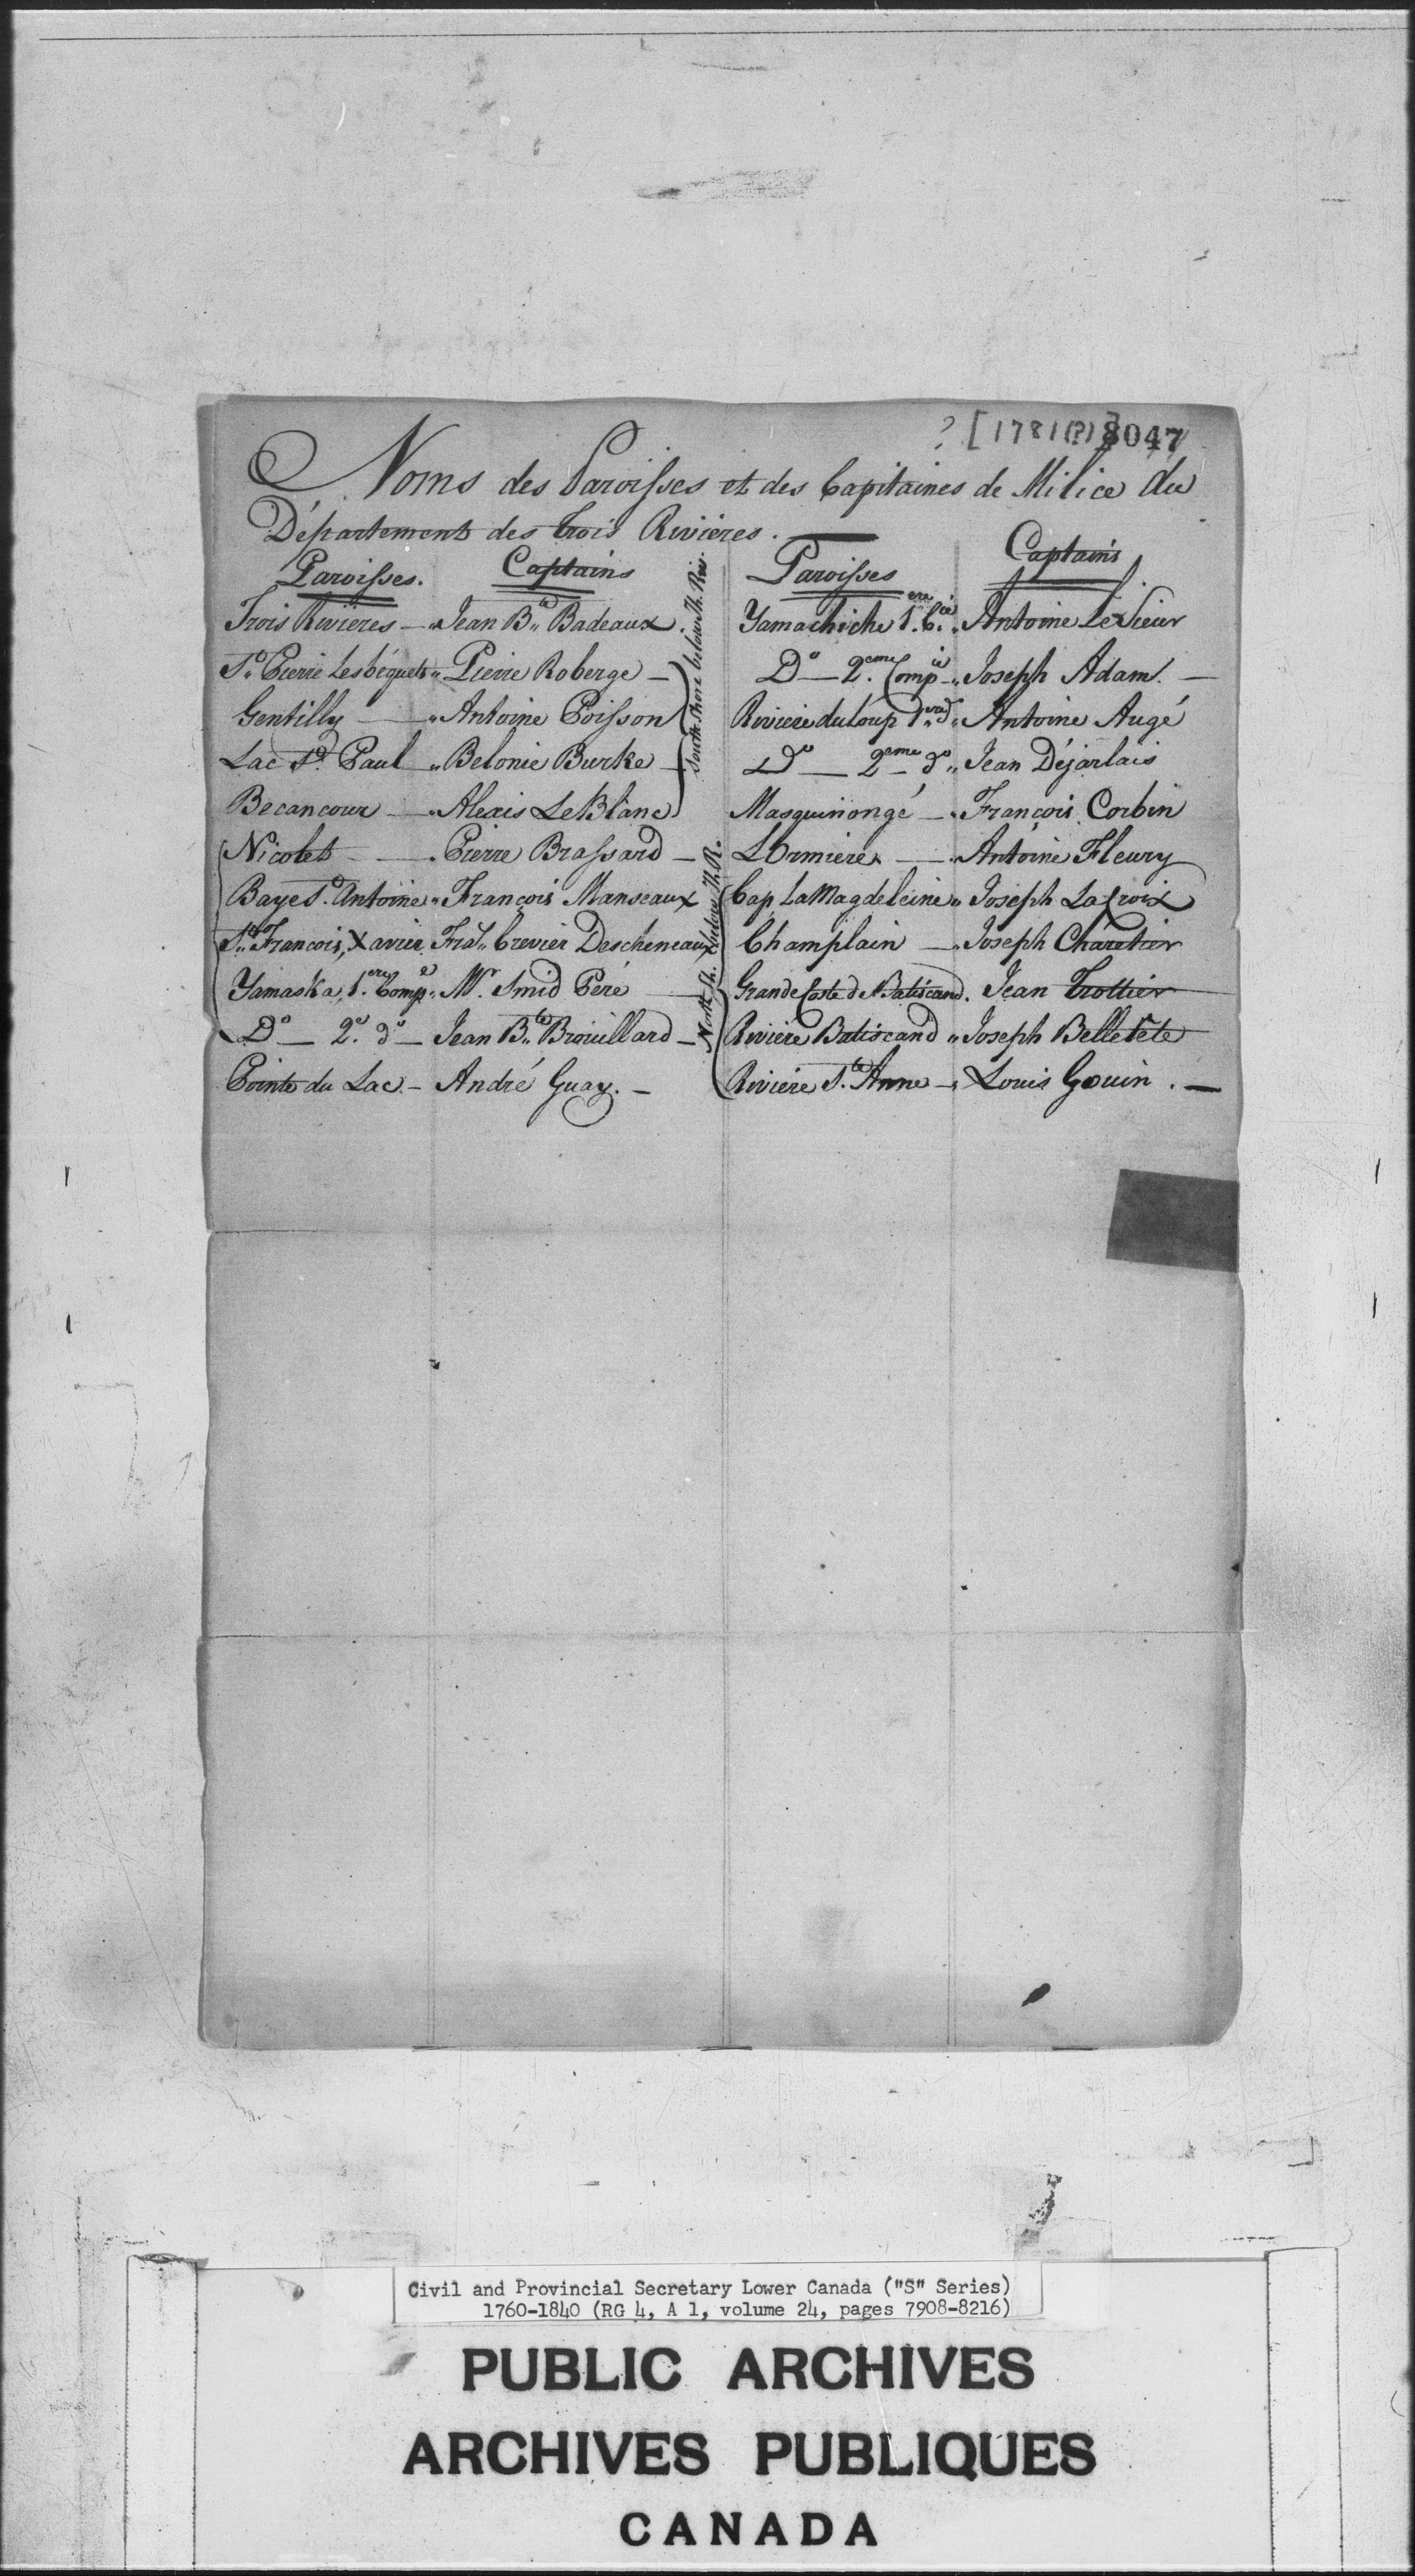 ? [1781(?)] 8047
Noms des Paroisses et des Capitaines de Milice du
Département des Trois Rivières.
Paroisses. Captains
Trois Rivières — " Jean Bte Badeaux.
St. Pierre Lesbéquets " Pierre Roberge —
Gentilly — " Antoine Poisson
Lac St. Paul " Belonie Burke —
Becancour — " Alexis LeBlanc
South Shore below Th. Riv.
Nicolet — " Pierre Brassard —
Baye St. Antoine " François Manseaux
St. François, Xavier Fras. Crevier Descheneaux
Yamaska, 1.ere Comp.e " Mr. Smid Péré —
Do — 2.e do — Jean Bte Brouillard —
Pointe du Lac — André Guay. —
Paroisses Captains
Yamachiche 1.ere C.ie " Antoine LeSieur
Do — 2.eme Compie " Joseph Adam. —
Riviere du Loup 1ere do " Antoine Augé
Do — 2eme — do " Jean Déjarlais
Masquinongé — " François Corbin
LOrmiere — " Antoine Fleury
North Sh. below Th. R.
Cap LaMagdeleine " Joseph LaCroix
Champlain — " Joseph Charetier
Grande Coste de Batiscand. Jean Trottier
Riviere Batiscand " Joseph Belletête
Riviere Ste Anne — " Louis Gouin. —
Civil and Provincial Secretary Lower Canada ("S" Series)
1760-1840 (RG 4, A 1, volume 24, pages 7908-8216)
PUBLIC ARCHIVES
ARCHIVES PUBLIQUES
CANADA